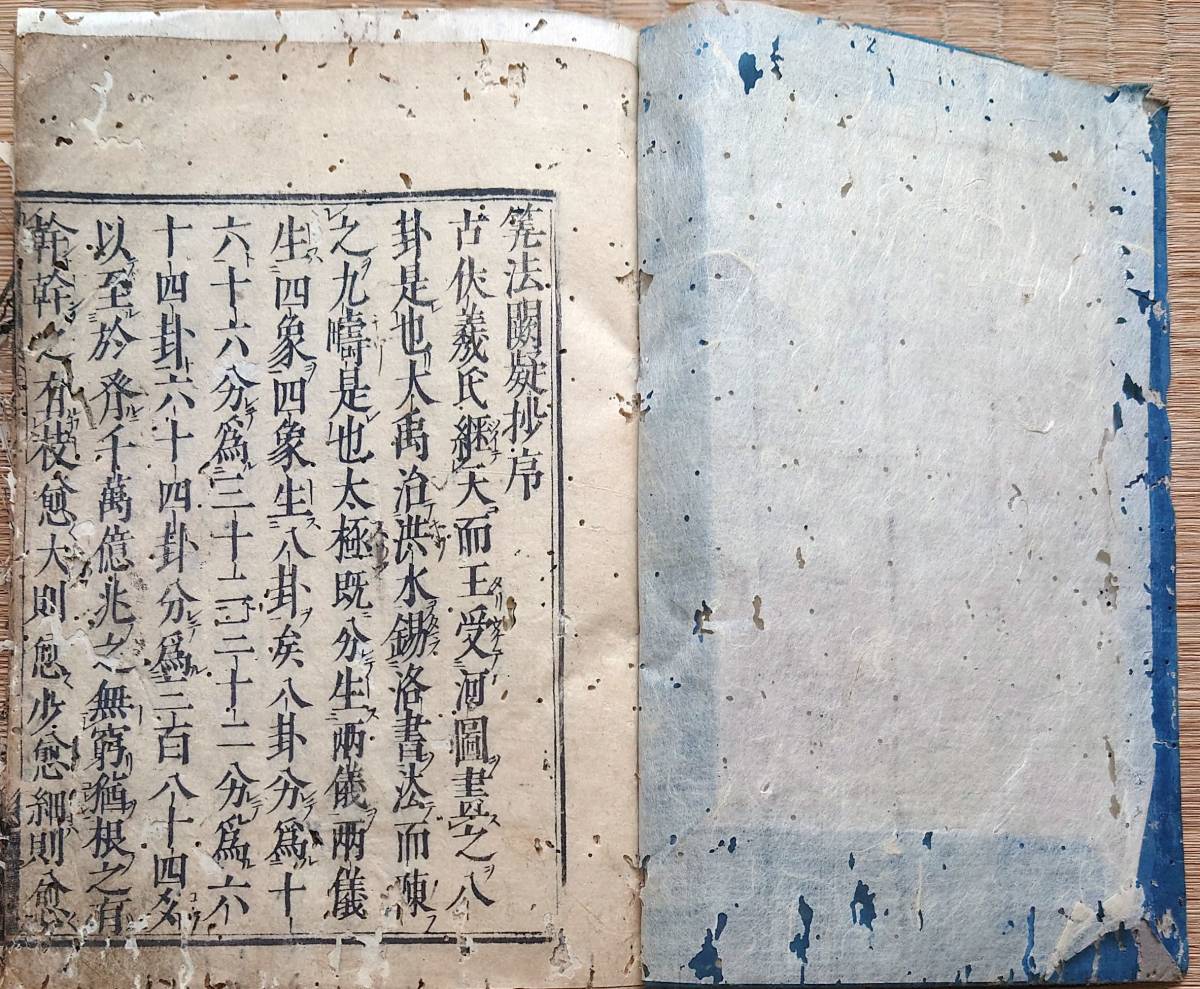 筭法闕疑抄序
古伏羲氏継天而王受河圖畫之八
卦是也大禹治洪水錫洛書法而陳
之九疇是也太極既分生兩儀兩儀
生四象四象生八卦矣八卦分為十
六十六分為三十二三十二分為六
十四卦六十四卦分為三百八十四爻
以至於千萬億兆之無窮猶根之有
幹幹之有枝愈大則愈少愈細則愈